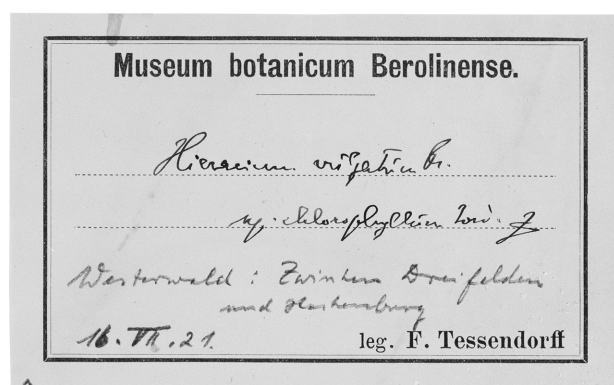 Museum botanicum Berolinense.
Hieracium vulgatum Fr.
ssp. chlorophyllum Jord. Z
Westerwald: Zwischen Dreifelden
und Hachenburg
16. VII. 21. leg. F. Tessendorff